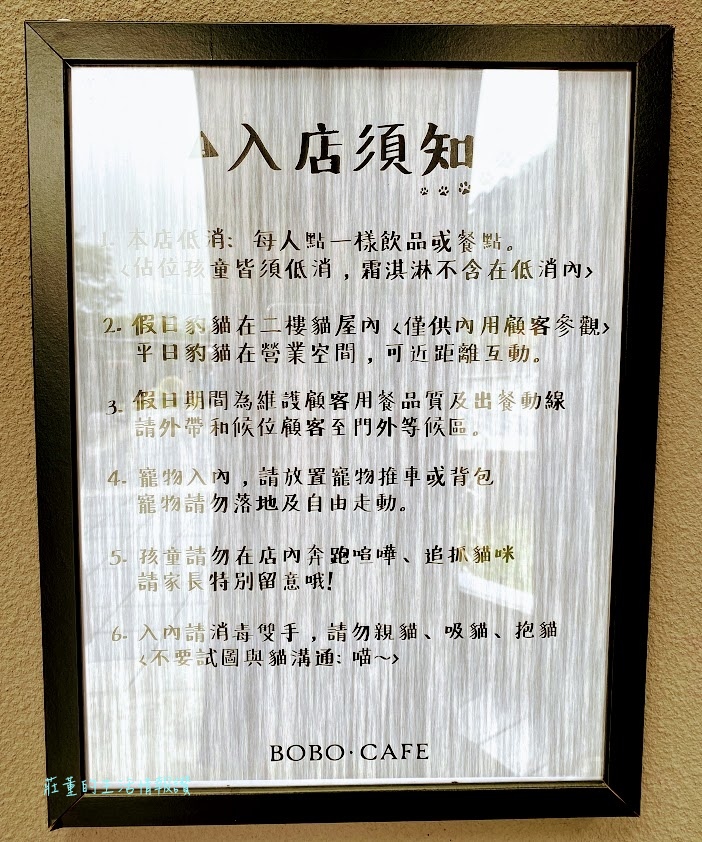 入店須知
1. 本店低消: 每人點一樣飲品或餐點。
<佔位孩童皆須低消,霜淇淋不含在低消內>
2. 假日豹貓在二樓貓屋內<僅供內用顧客參觀>
平日豹貓在營業空間,可近距離互動。
3. 假日期間為維護顧客用餐品質及出餐動線
請外帶和候位顧客至門外等候區。
4. 寵物入內,請放置寵物推車或背包
寵物請勿落地及自由走動。
5. 孩童請勿在店內奔跑喧嘩、追抓貓咪
請家長特別留意哦!
6. 入內請消毒雙手,請勿親貓、吸貓、抱貓
<不要試圖與貓溝通: 喵~>
BOBO·CAFE
莊董的生活情報讚